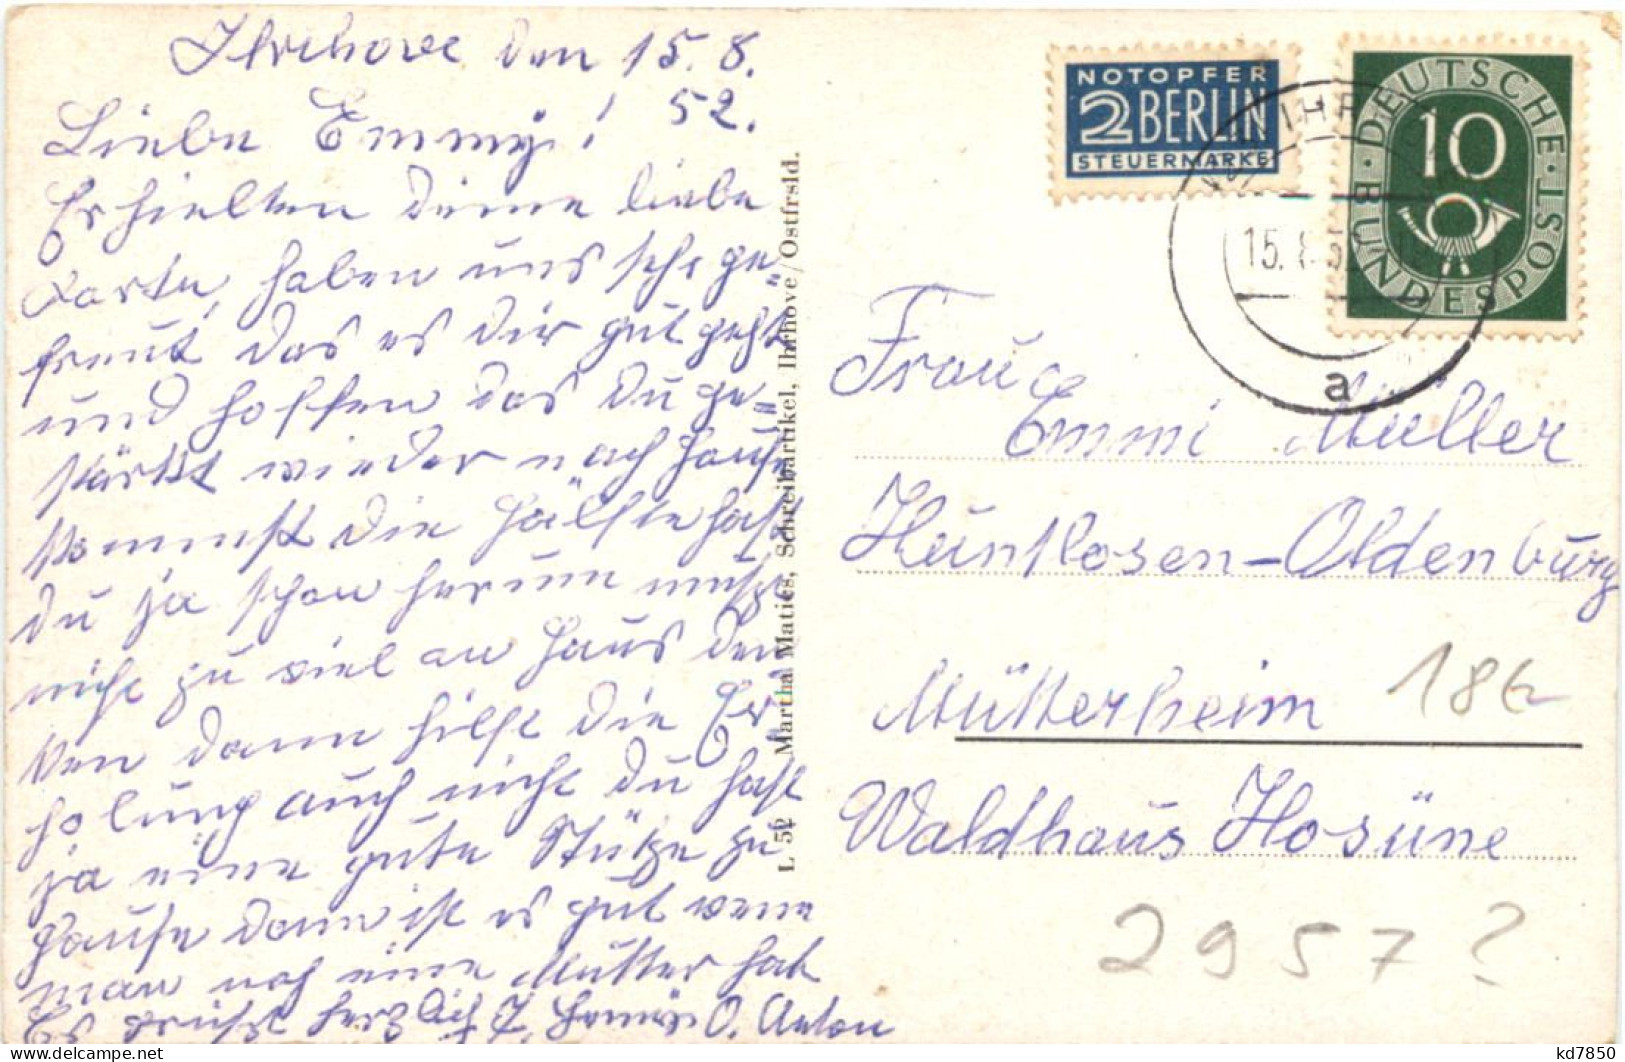 Ihrhove den 15.8.
52.
Liebe Emmy!
Erhielten deine liebe
Karte, haben uns sehr ge=
freut das es dir gut geht
und hoffen das du ge=
stärkt wieder nach Hause
kommst die Hälfte hast
du ja schon herum mußt
nicht zu viel an Haus den
ken dann hilft die Er
holung auch nicht du hast
ja eine gute Stütze zu
Hause dann ist es gut wenn
man noch eine Mutter hat
Es grüßt herzlich O. Anton
L 52 Martha Maties, Schreibartikel, Ihrhove/Ostfrsld.
NOTOPFER
2 BERLIN
STEUERMARKE
DEUTSCHE BUNDESPOST
10
15. 8. 52
a
Frau
Emmi Müller
Huntlosen-Oldenburg
Mütterheim
186
Waldhaus Hosüne
2957?
kd7850